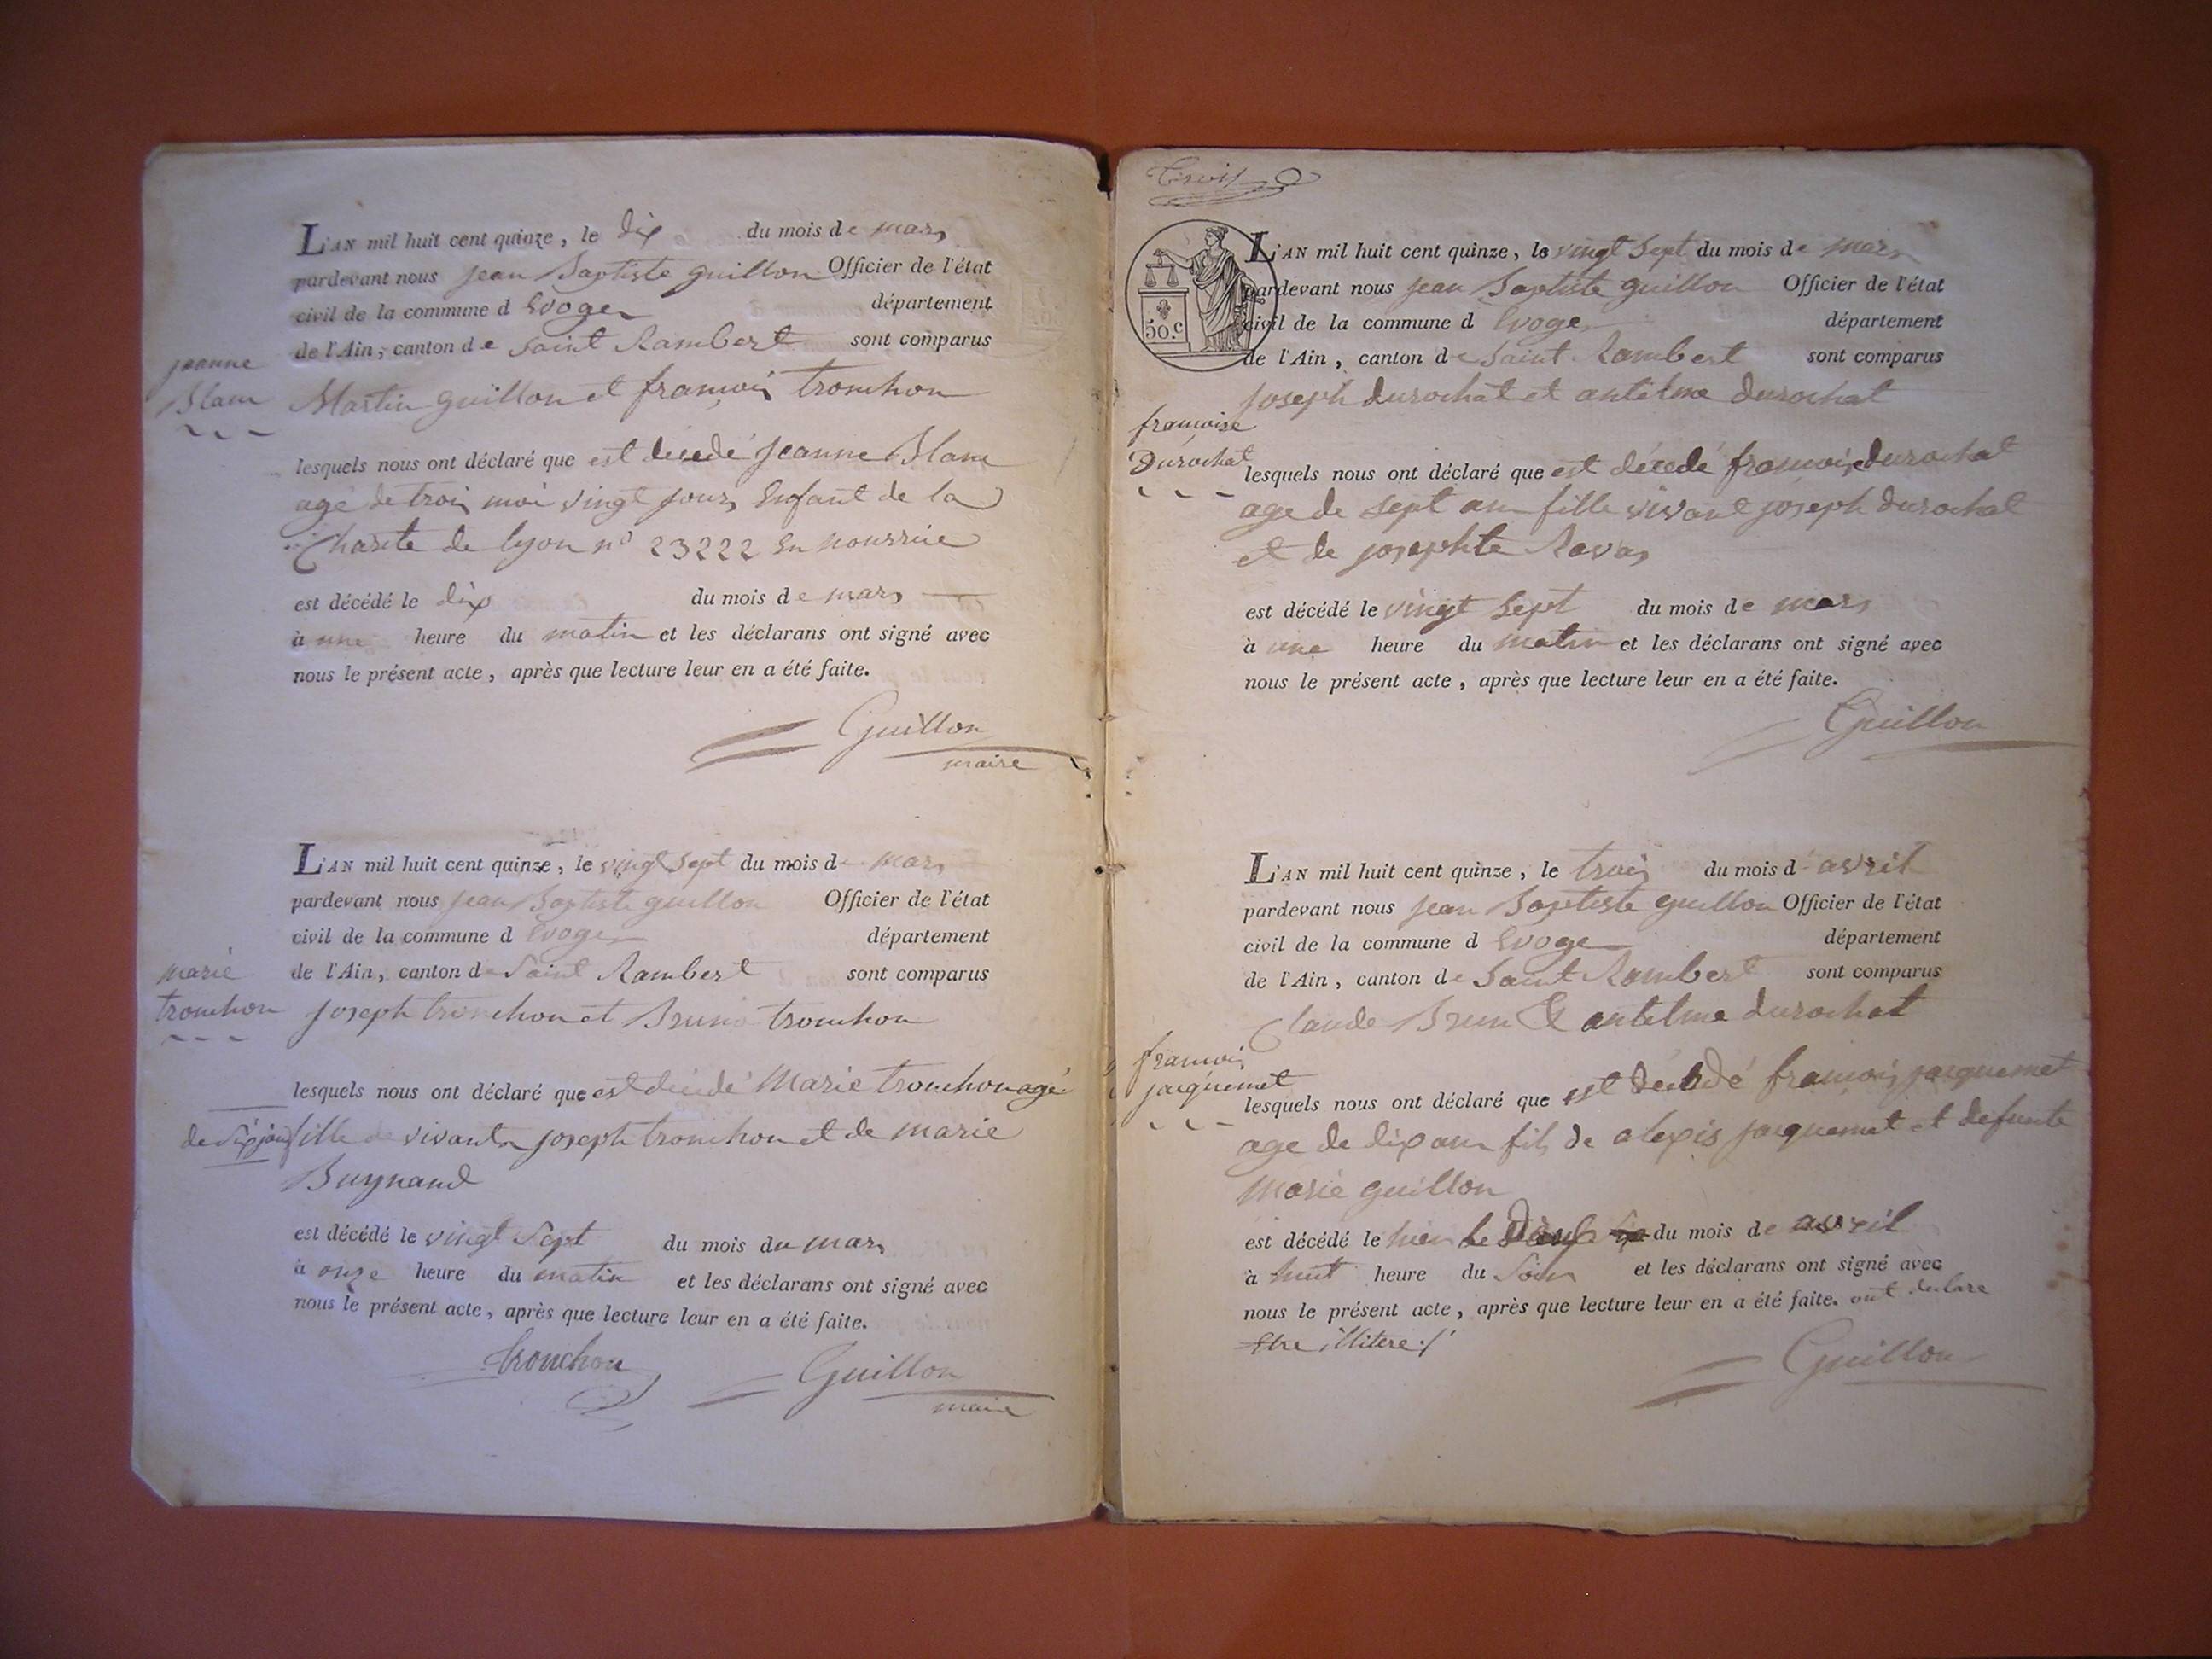 L'AN mil huit cent quinze, le dix du mois de mars
pardevant nous jean Baptiste guillon Officier de l'état
civil de la commune d Evoges département
de l'Ain, canton de Saint Rambert sont comparus
jeanne
Blanc
Martin guillon et françois tronchon
lesquels nous ont déclaré que est décedé jeanne Blanc
agé de trois moi vingt jours Enfant de la
Charite de lyon n° 23222 En nourrice
est décédé le dix du mois de mars
à une heure du matin et les déclarans ont signé avec
nous le présent acte, après que lecture leur en a été faite.
Guillon
maire
L'AN mil huit cent quinze, le vingt sept du mois de mars
pardevant nous jean Baptiste guillon Officier de l'état
civil de la commune d Evoges département
de l'Ain, canton de Saint Rambert sont comparus
marie
tronchon
joseph tronchon et Bruno tronchon
lesquels nous ont déclaré que est décedé Marie tronchon agé
de jour fille de vivants joseph tronchon et de marie
Buynand
est décédé le vingt sept du mois du mars
à onze heure du matin et les déclarans ont signé avec
nous le présent acte, après que lecture leur en a été faite.
tronchon Guillon
maire
Trois
50.c
L'AN mil huit cent quinze, le vingt sept du mois de mars
pardevant nous jean Baptiste guillon Officier de l'état
civil de la commune d Evoges département
de l'Ain, canton de Saint Rambert sont comparus
joseph durochat et antelme durochat
françoise
Durochat
lesquels nous ont déclaré que est décedé françoise durochat
age de sept ans fille vivant joseph durochat
et de josephte Ravas
est décédé le vingt sept du mois de mars
à une heure du matin et les déclarans ont signé avec
nous le présent acte, après que lecture leur en a été faite.
Guillon
L'AN mil huit cent quinze, le trois du mois d avril
pardevant nous jean Baptiste guillon Officier de l'état
civil de la commune d Evoges département
de l'Ain, canton de Saint Rambert sont comparus
Claude Brun Et antelme durochat
françois
jacquemet
lesquels nous ont déclaré que est décédé françois jacquemet
age de dix ans fils de alexis jacquemet et defunte
Marie guillon
est décédé le hier le du mois de avril
à huit heure du Soir et les déclarans ont signé avec
nous le présent acte, après que lecture leur en a été faite. ont declare
Etre illitere
Guillon